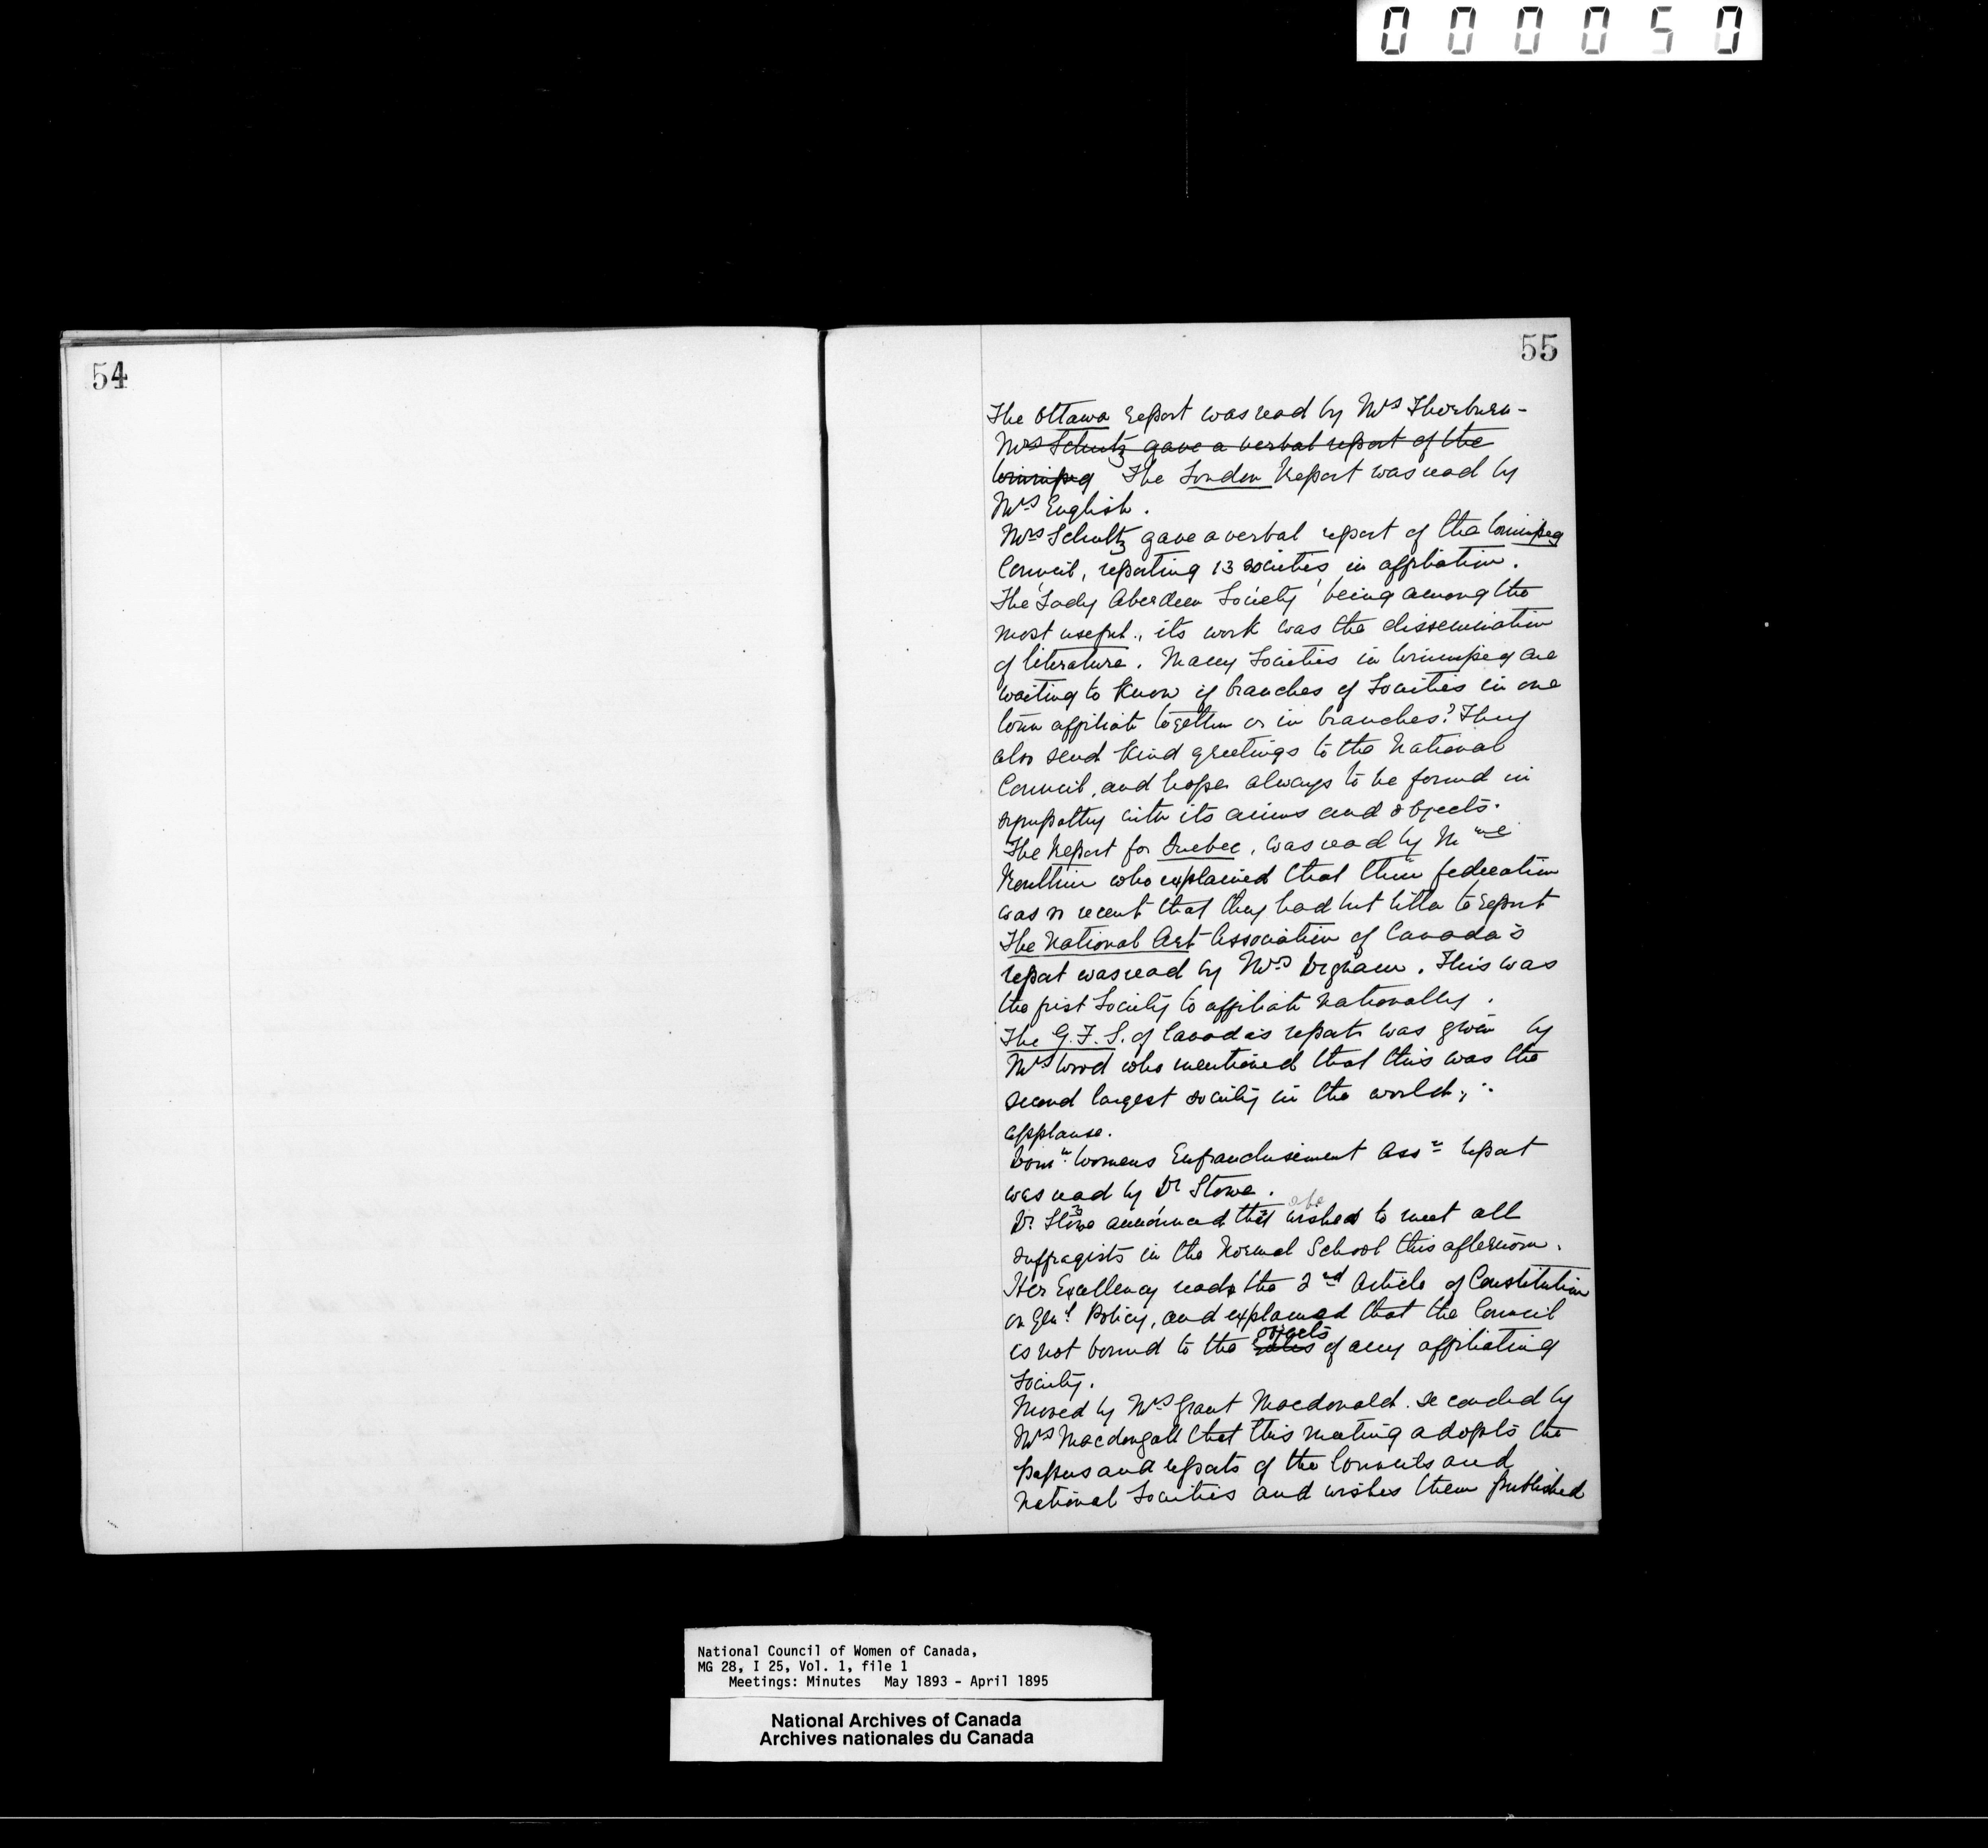 000050
54
55
The Ottawa report was read by Mrs Thorburn -
Mrs Schultz gave a verbal report of the
Winnipeg The London Report was read by
Mrs English.
Mrs Schultz gave a verbal report of the Winnipeg
Council, reporting 13 societies in affiliation.
The 'Lady Aberdeen Society' being among the
most useful., its work was the dissemination
of literature. Many Societies in Winnipeg are
waiting to know if branches of Societies in one
town affiliate together or in branches? They
also send kind greetings to the National
Council, and hope always to be found in
sympathy with its aims and objects.
The Report for Quebec, was read by Mme
who explained that their federation
was so recent that they had but little to report
The National Art Association of Canada's
report was read by Mrs Dignam. This was
the first Society to affiliate nationally.
The G.F.S. of Canada's report was given by
Mrs Wood who mentioned that this was the
second largest society in the world;
applause.
Domn. Womens Enfranchisement Assn report
was read by Dr Stowe.
Dr. Stowe announced that she wished to meet all
suffragists in the Normal School this afternoon.
Her Excellency reads the 2nd Article of Constitution
on Genl Policy, and explained that the Council
objects
is not bound to the of any affiliating
Society.
Moved by Mrs Grant Macdonald. seconded by
Mrs Macdougall that this meeting adopts the
papers and reports of the Councils and
National Societies and wishes them published
National Council of Women of Canada,
MG 28, I 25, Vol. 1, file 1
Meetings: Minutes May 1893 - April 1895
National Archives of Canada
Archives nationales du Canada